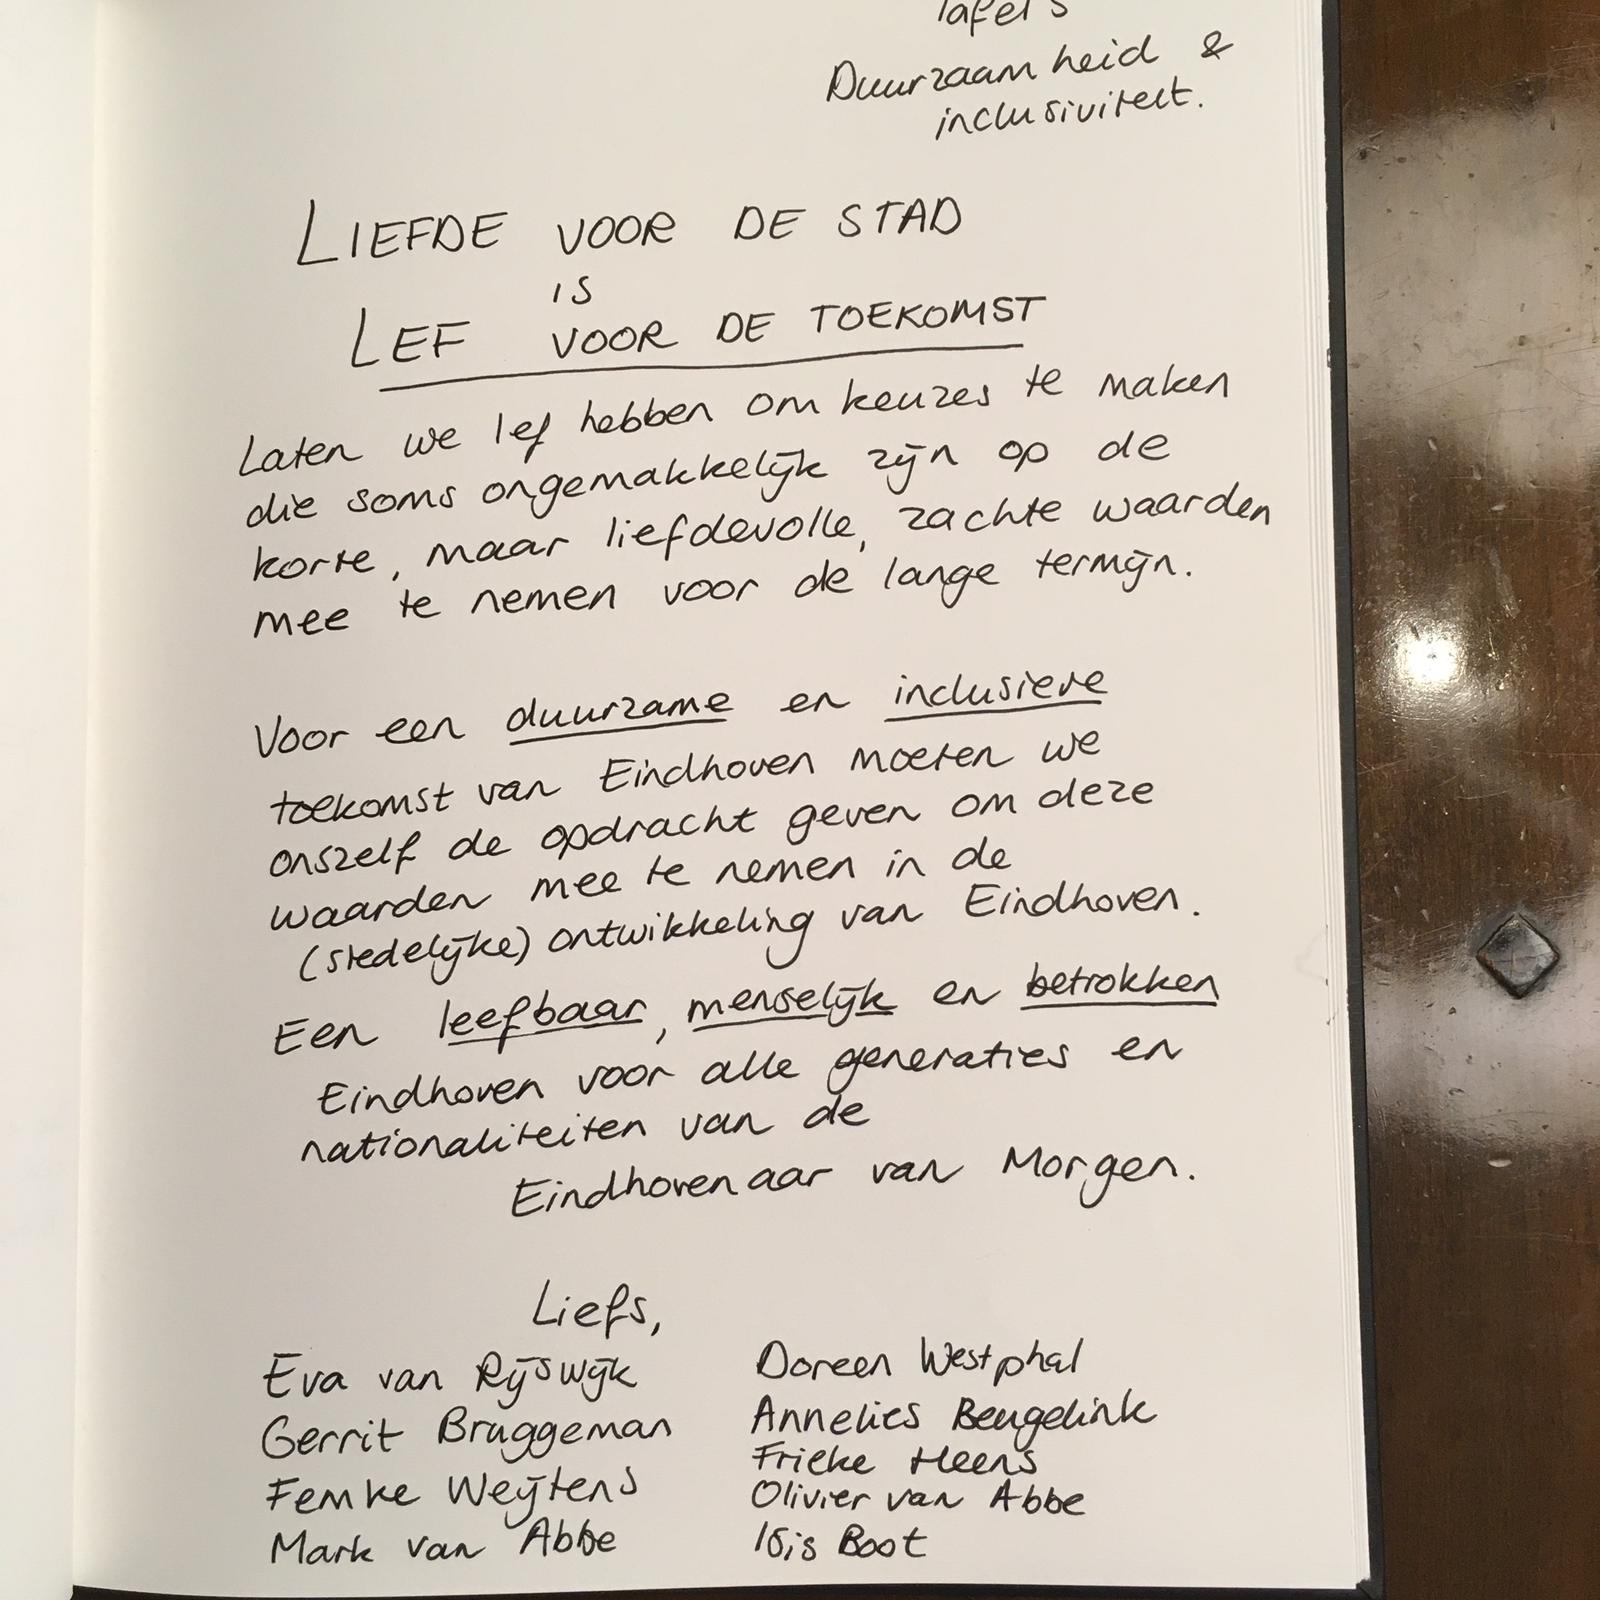 Tafels
Duurzaamheid &
inclusiviteit.
LIEFDE VOOR DE STAD
IS
LEF VOOR DE TOEKOMST
Laten we lef hebben om keuzes te maken
die soms ongemakkelijk zijn op de
korte, maar liefdevolle, zachte waarden
mee te nemen voor de lange termijn.
Voor een duurzame en inclusieve
toekomst van Eindhoven moeten we
onszelf de opdracht geven om deze
waarden mee te nemen in de
(stedelijke) ontwikkeling van Eindhoven.
Een leefbaar, menselijk en betrokken
Eindhoven voor alle generaties en
nationaliteiten van de
Eindhovenaar van Morgen.
Liefs,
Eva van Rijswijk
Gerrit Bruggeman
Femke Weijtens
Mark van Abbe
Doreen Westphal
Annelies Beugelink
Frieke Heens
Olivier van Abbe
Isis Boot